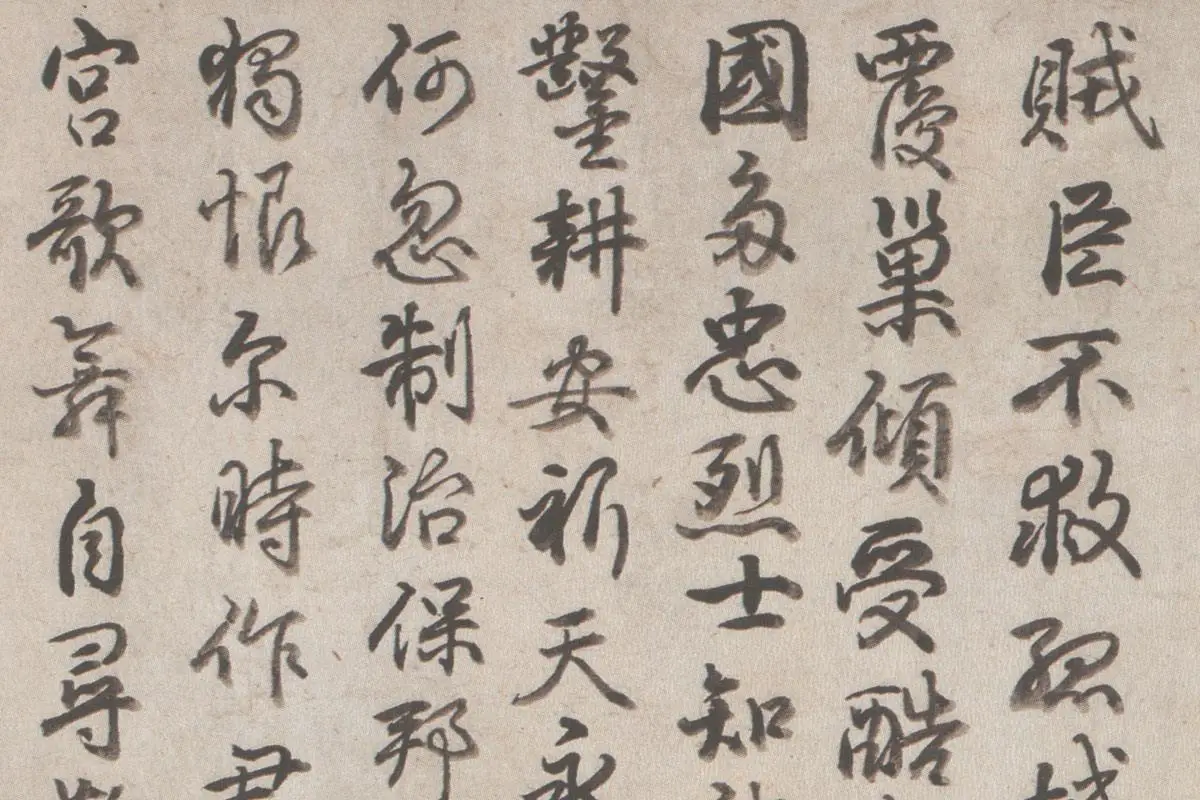 賊臣不救孤城
覆巢傾受酷
國多忠烈士知
鑿耕安祈天永
何忽制治保邦
獨恨尔時作君
宮歌舞自尋